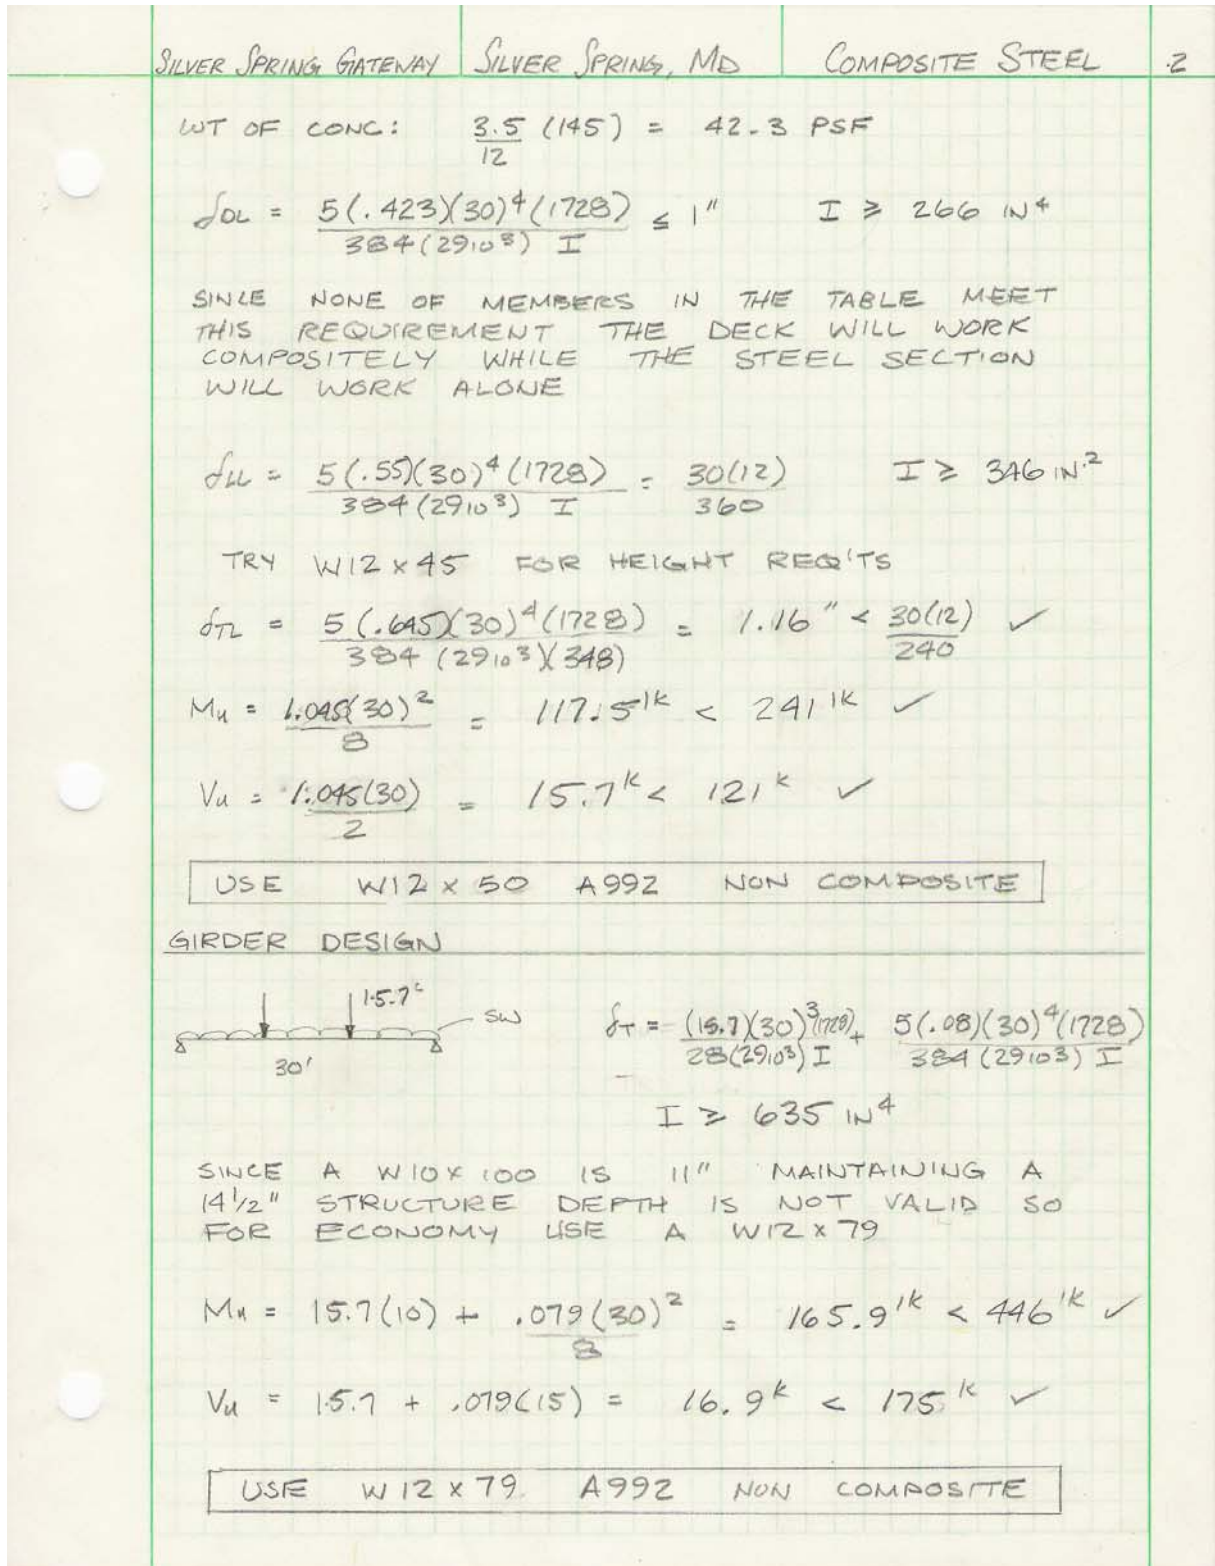 SILVER SPRING GATEWAY SILVER SPRING, MD COMPOSITE STEEL 2
WT OF CONC: 3.5/12 (145) = 42.3 PSF
δDL = 5(.423)(30)^4(1728) / 384(29,10^3) I ≤ 1" I ≥ 266 IN^4
SINCE NONE OF MEMBERS IN THE TABLE MEET
THIS REQUIREMENT THE DECK WILL WORK
COMPOSITELY WHILE THE STEEL SECTION
WILL WORK ALONE
δLL = 5(.55)(30)^4(1728) / 384(2910^3) I = 30(12)/360 I ≥ 346 IN.^2
TRY W12 x 45 FOR HEIGHT REQ'TS
δTL = 5(.645)(30)^4(1728) / 384 (2910^3)(348) = 1.16" < 30(12)/240 ✓
Mu = 1.045(30)^2 / 8 = 117.5'k < 241'k ✓
Vu = 1.045(30) / 2 = 15.7k < 121k ✓
USE W12 x 50 A992 NON COMPOSITE
GIRDER DESIGN
15.7k
SW
30'
δT = (15.7)(30)^3(1728) / 28(2910^3) I + 5(.08)(30)^4(1728) / 384(2910^3) I
I ≥ 635 IN^4
SINCE A W10 x 100 IS 11" MAINTAINING A
14 1/2" STRUCTURE DEPTH IS NOT VALID SO
FOR ECONOMY USE A W12 x 79
Mu = 15.7(10) + .079(30)^2 / 8 = 165.9'k < 446'k ✓
Vu = 15.7 + .079(15) = 16.9k < 175k ✓
USE W12 x 79 A992 NON COMPOSITE